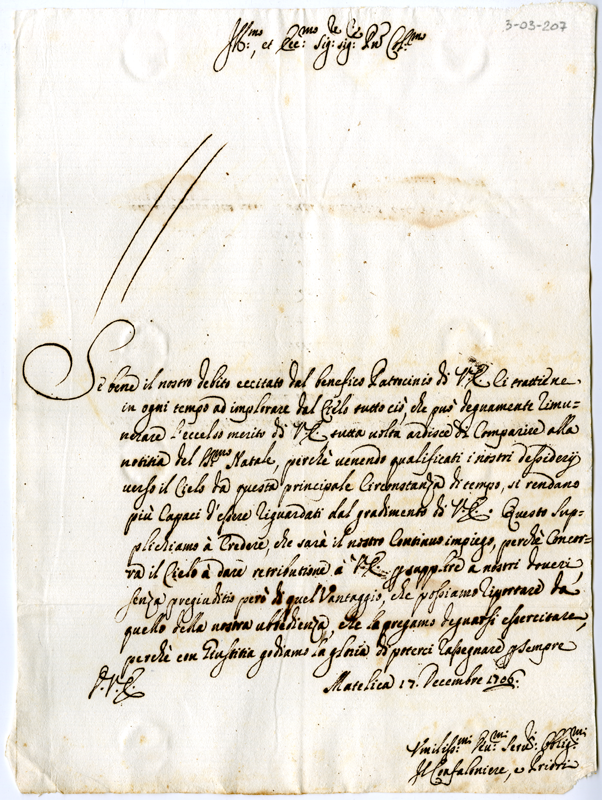 3-03-207
Ill:mo, et Rev:mo Sig: Sig: Pne Col:mo
Se bene il nostro debito eccitato dal benefico Patrocinio di V.E. ci trattiene
in ogni tempo ad implorare dal Cielo tutto ciò, che può degnamente rimu-
nerare l'eccelso merito di V.E. tutta volta ardisce di comparire alla
notitia del S:mo Natale, perchè venendo qualificati i nostri dessiderij
verso il Cielo da questa principale Circonstanza di tempo, si rendano
più Capaci d'essere riguardati dal gradimento di V.E.: Questo Sup-
plichiamo à Credere, che sarà il nostro Continuo impiego, perchè Concor-
ra il Cielo à dare retributione à V.E. p supplire a nostri doveri
senza pregiuditio però di quel Vantaggio, che possiamo riportare da
quello della nostra ubbedienza, che la pregamo degnarsi essercitare,
perchè con Giustitia godiamo la gloria di poterci rassegnare p sempre
D. V.E.
Matelica 17. Decembre 1706.
Vmiliss:mi Deu:mi Seru:ri Oblig:mi
Il Confaloniere, e Priori